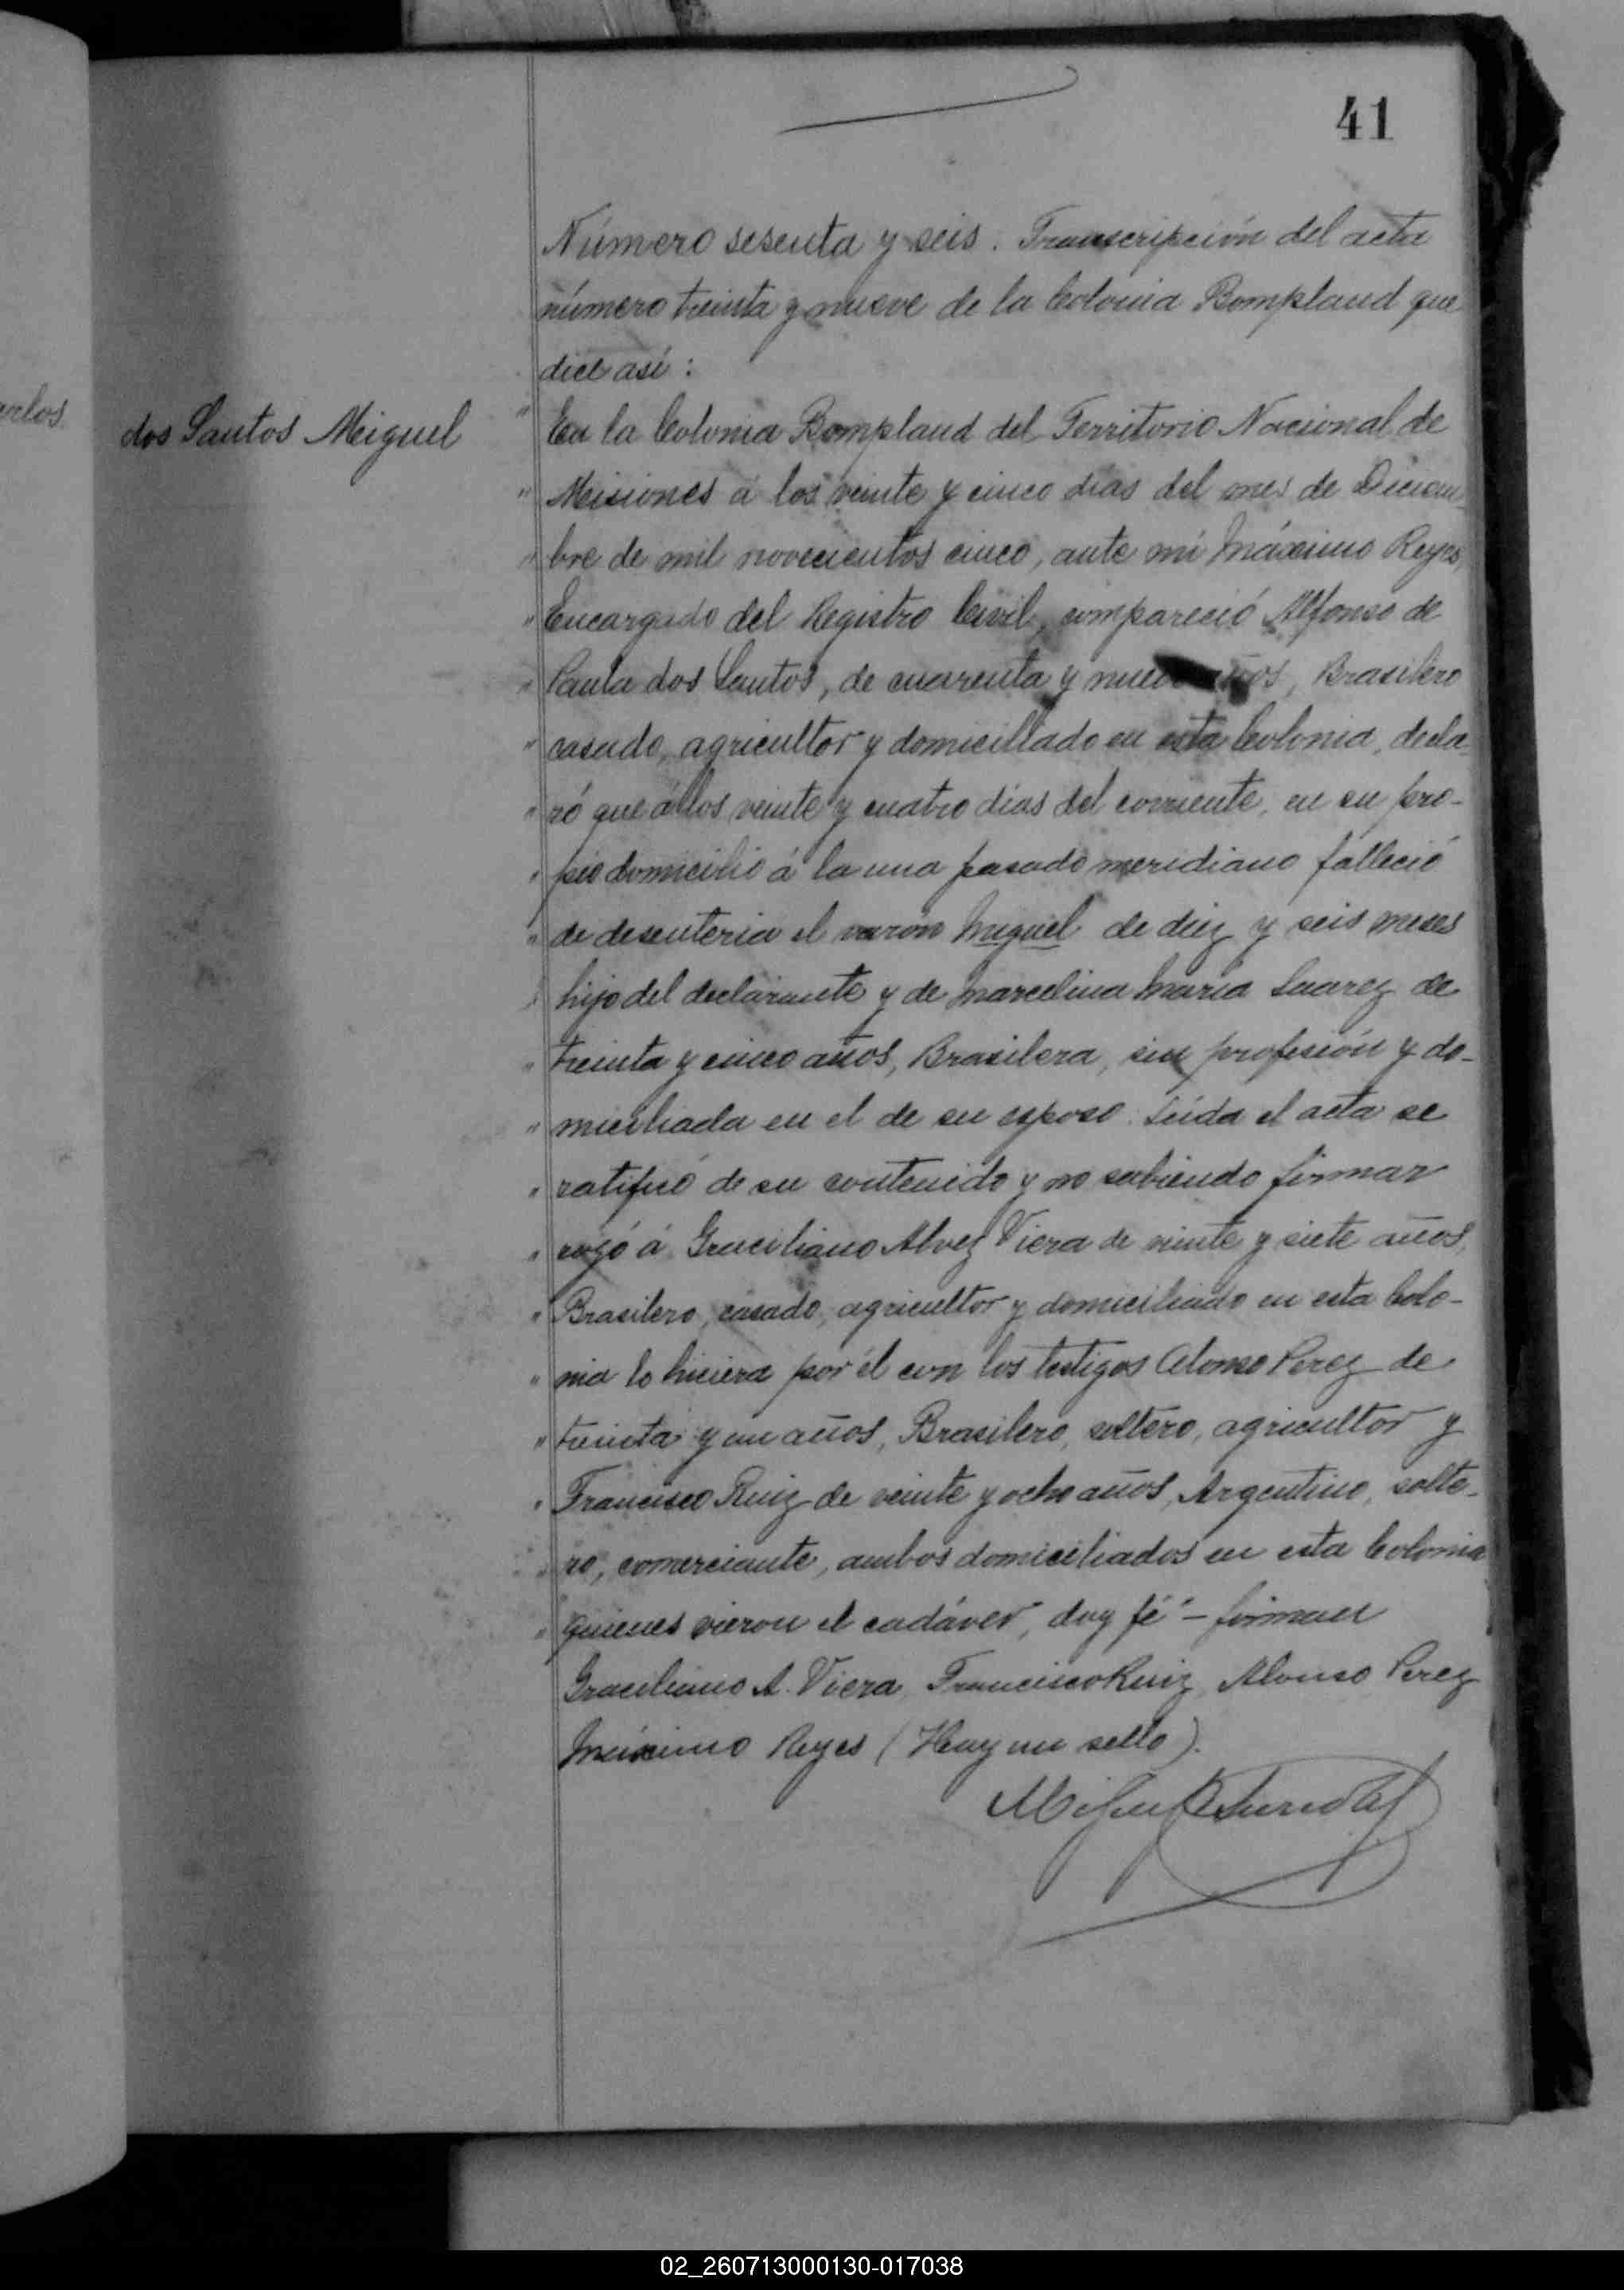 41
Número sesenta y seis. Transcripción del acta
número treinta y nueve de la Colonia Bompland que
dice así:
dos Santos Miguel
" En la Colonia Bompland del Territorio Nacional de
" Misiones á los veinte y cinco días del mes de Diciem-
" bre de mil novecientos cinco, ante mí Máximo Reyes,
" Encargado del Registro Civil, compareció Alfonso de
" Paula dos Santos, de cuarenta y nueve años, Brasilero
" casado, agricultor y domiciliado en esta Colonia, decla-
" ró que á los veinte y cuatro días del corriente, en su pro-
" pio domicilio á la una pasado meridiano falleció
" de desenteria el varón Miguel de diez y seis meses
" hijo del declarante y de Marcelina María Suarez de
" treinta y cinco años, Brasilera, sin profesión y do-
" miciliada en el de su esposo. Leída el acta se
" ratificó de su contenido y no sabiendo firmar
" rogó á Graciliano Alvez Viera de veinte y siete años,
" Brasilero, casado, agricultor y domiciliado en esta Colo-
" nia lo hiciera por él con los testigos Alonso Perez de
" treinta y un años, Brasilero, soltero, agricultor y
" Francisco Ruiz de veinte y ocho años, Argentino, solte-
" ro, comerciante, ambos domiciliados en esta Colonia
" quienes vieron el cadáver, doy fé - firman
Graciliano A. Viera, Francisco Ruiz, Alonso Perez
Máximo Reyes (Hay un sello).
02_260713000130-017038